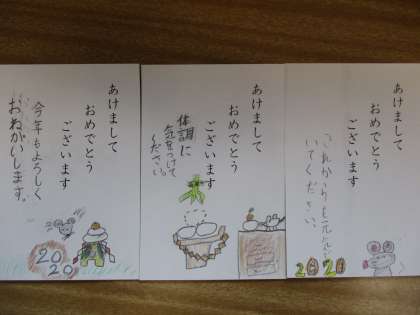 あけまして
おめでとう
ございます
今年もよろしく
おねがいします。
2020
あけまして
おめでとう
ございます
体調に
気をつけて
ください。
あけまして
おめでとう
ございます
これからも元気で
いてください。
2020